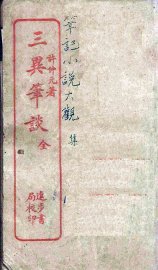 筆記小說大觀 集
許仲元著
三異筆談 全
進步書局校印